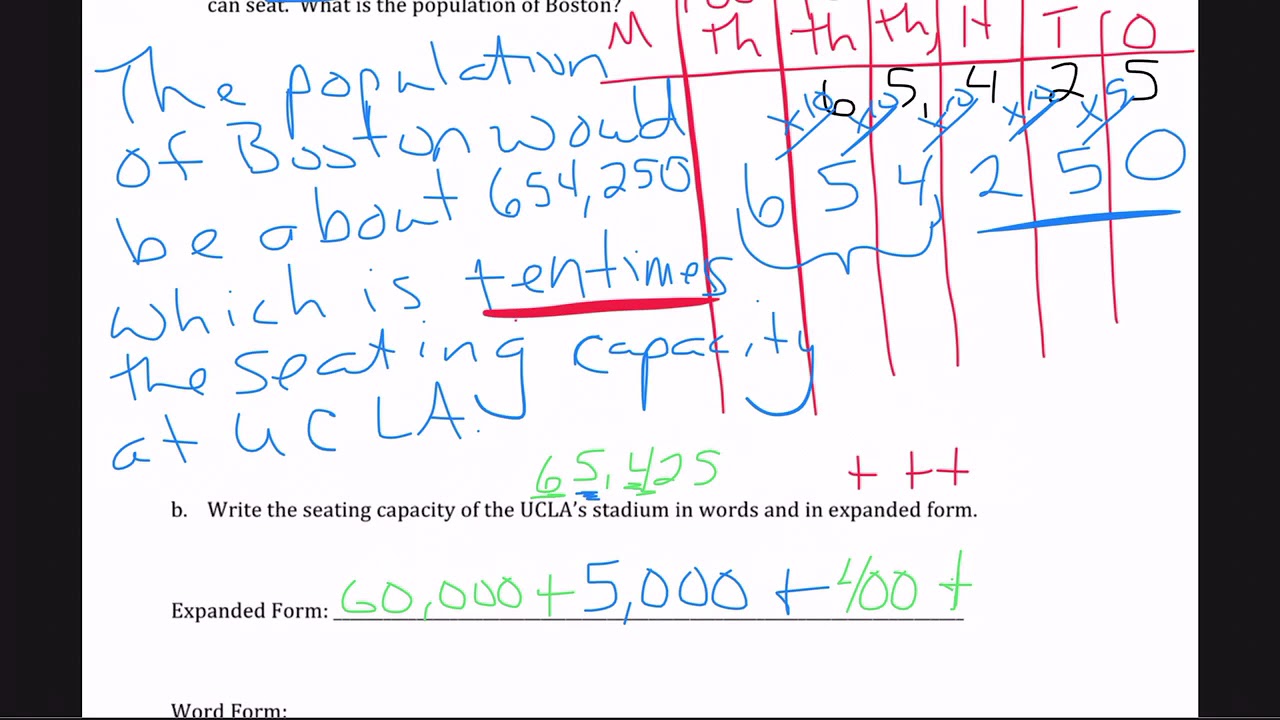 can seat. What is the population of Boston?
M th th th, H T O
6 5, 4 2 5
x10 x10 x10 x10
6 5 4 2 5 0
The population
of Boston would
be about 654,250
which is tentimes
the seating capacity
at UCLA.
65,425
+ + +
b. Write the seating capacity of the UCLA's stadium in words and in expanded form.
Expanded Form: 60,000 + 5,000 + 400 +
Word Form: